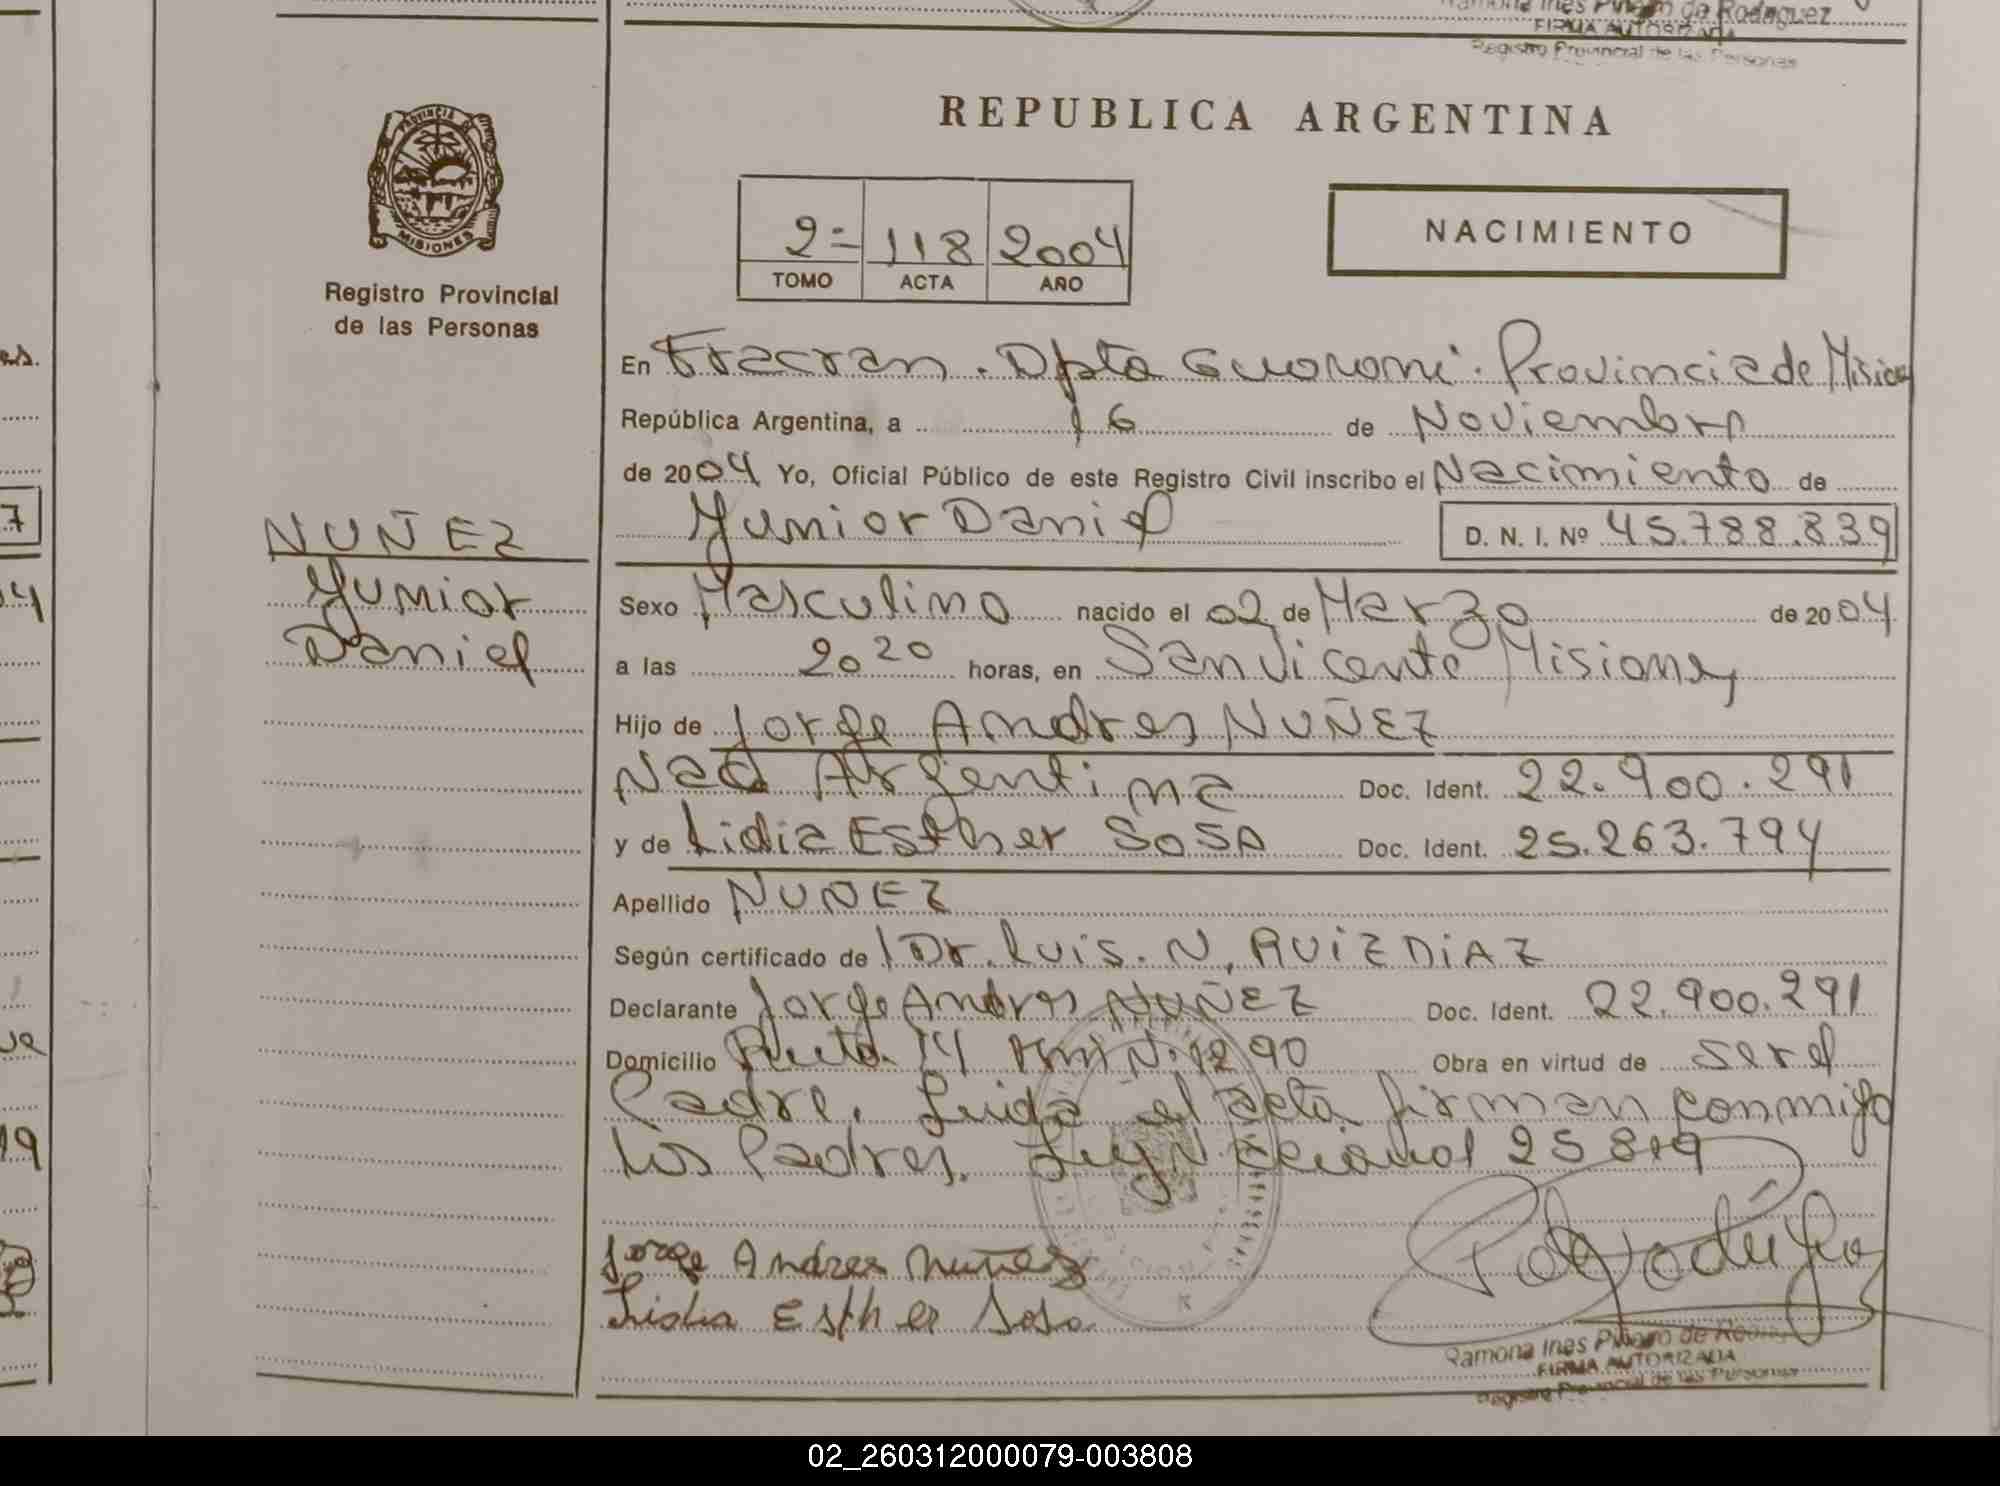 Ramona Ines Piñero de Rodriguez
FIRMA AUTORIZADA
Registro Provincial de las Personas
PROVINCIA DE
MISIONES
Registro Provincial
de las Personas
NUÑEZ
Yunior
Daniel
REPUBLICA ARGENTINA
2= 118 2004
TOMO ACTA AÑO
NACIMIENTO
En Fracran. Dpto Guarani. Provincia de Misiones
República Argentina, a 16 de Noviembre
de 2004 Yo, Oficial Público de este Registro Civil inscribo el Nacimiento de
Yunior Daniel D. N. I. Nº 45.788.839
Sexo Masculino nacido el 02 de Marzo de 2004
a las 20 20 horas, en San Vicente Misiones
Hijo de Jorge Andres NUÑEZ
Nac Argentina Doc. Ident. 22.900.291
y de Lidia Esther SOSA Doc. Ident. 25.263.794
Apellido NUÑEZ
Según certificado de Dr. Luis. N. RUIZ DIAZ
Declarante Jorge Andres NUÑEZ Doc. Ident. 22.900.291
Domicilio Ruta 14 Km N. 1290 Obra en virtud de ser el
Padre. Leida el acta firman conmigo
los Padres. Ley Nacional 25819
Jorge Andres Nuñez
Lidia Esther Sosa
Ramona Ines Piñero de Rodriguez
FIRMA AUTORIZADA
Registro Provincial de las Personas
es.
7
04
19
02_260312000079-003808